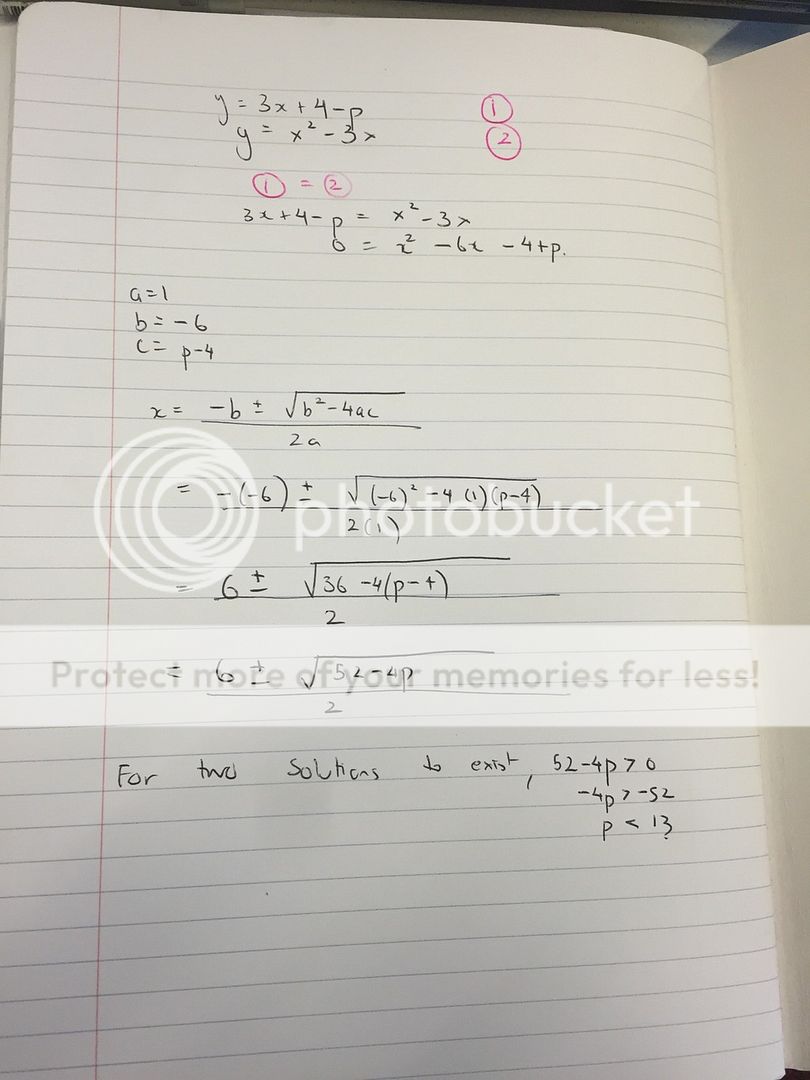 y = 3x + 4 - p ①
y = x² - 3x ②
① = ②
3x + 4 - p = x² - 3x
0 = x² - 6x - 4 + p.
a = 1
b = -6
c = p - 4
x = -b ± √b² - 4ac
2a
= -(-6) ± √(-6)² - 4 (1)(p-4)
2(1)
photobucket
= 6 ± √36 - 4(p-4)
2
Protect more of your memories for less!
= 6 ± √52 - 4p
2
For two solutions to exist, 52 - 4p > 0
-4p > -52
p < 13